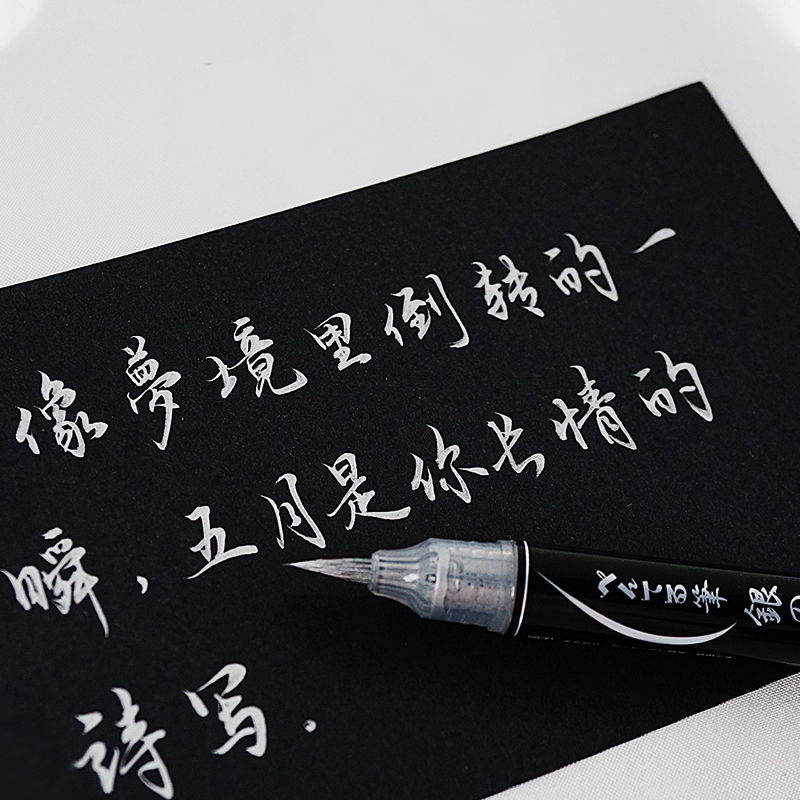 像夢境里倒转的一
瞬，五月是你长情的
詩写.
ぺんてる筆 銀の